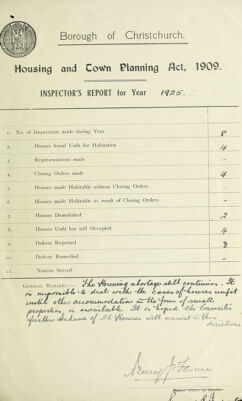 Borough of Christchurch.
Housing and Town Planning Act, 1909.
INSPECTOR'S REPORT for Year 1925.
1. No. of Inspections made during Year 8
2. Houses found Unfit for Habitation 4
3. Representations made -
4. Closing Orders made 4
5. Houses made Habitable without Closing Orders -
6. Houses made Habitable as result of Closing Orders -
7. Houses Demolished 2
8. Houses Unfit but still Occupied 4
9. Defects Reported 8
10. Defects Remedied -
11. Notices Served -
GENERAL REMARKS — The Housing shortage still continues. It
is impossible to deal with the cases of houses unfit
until other accommodation in the form of small
properties is available. It is hoped the Council's
further scheme of 26 Houses will assist in this
direction